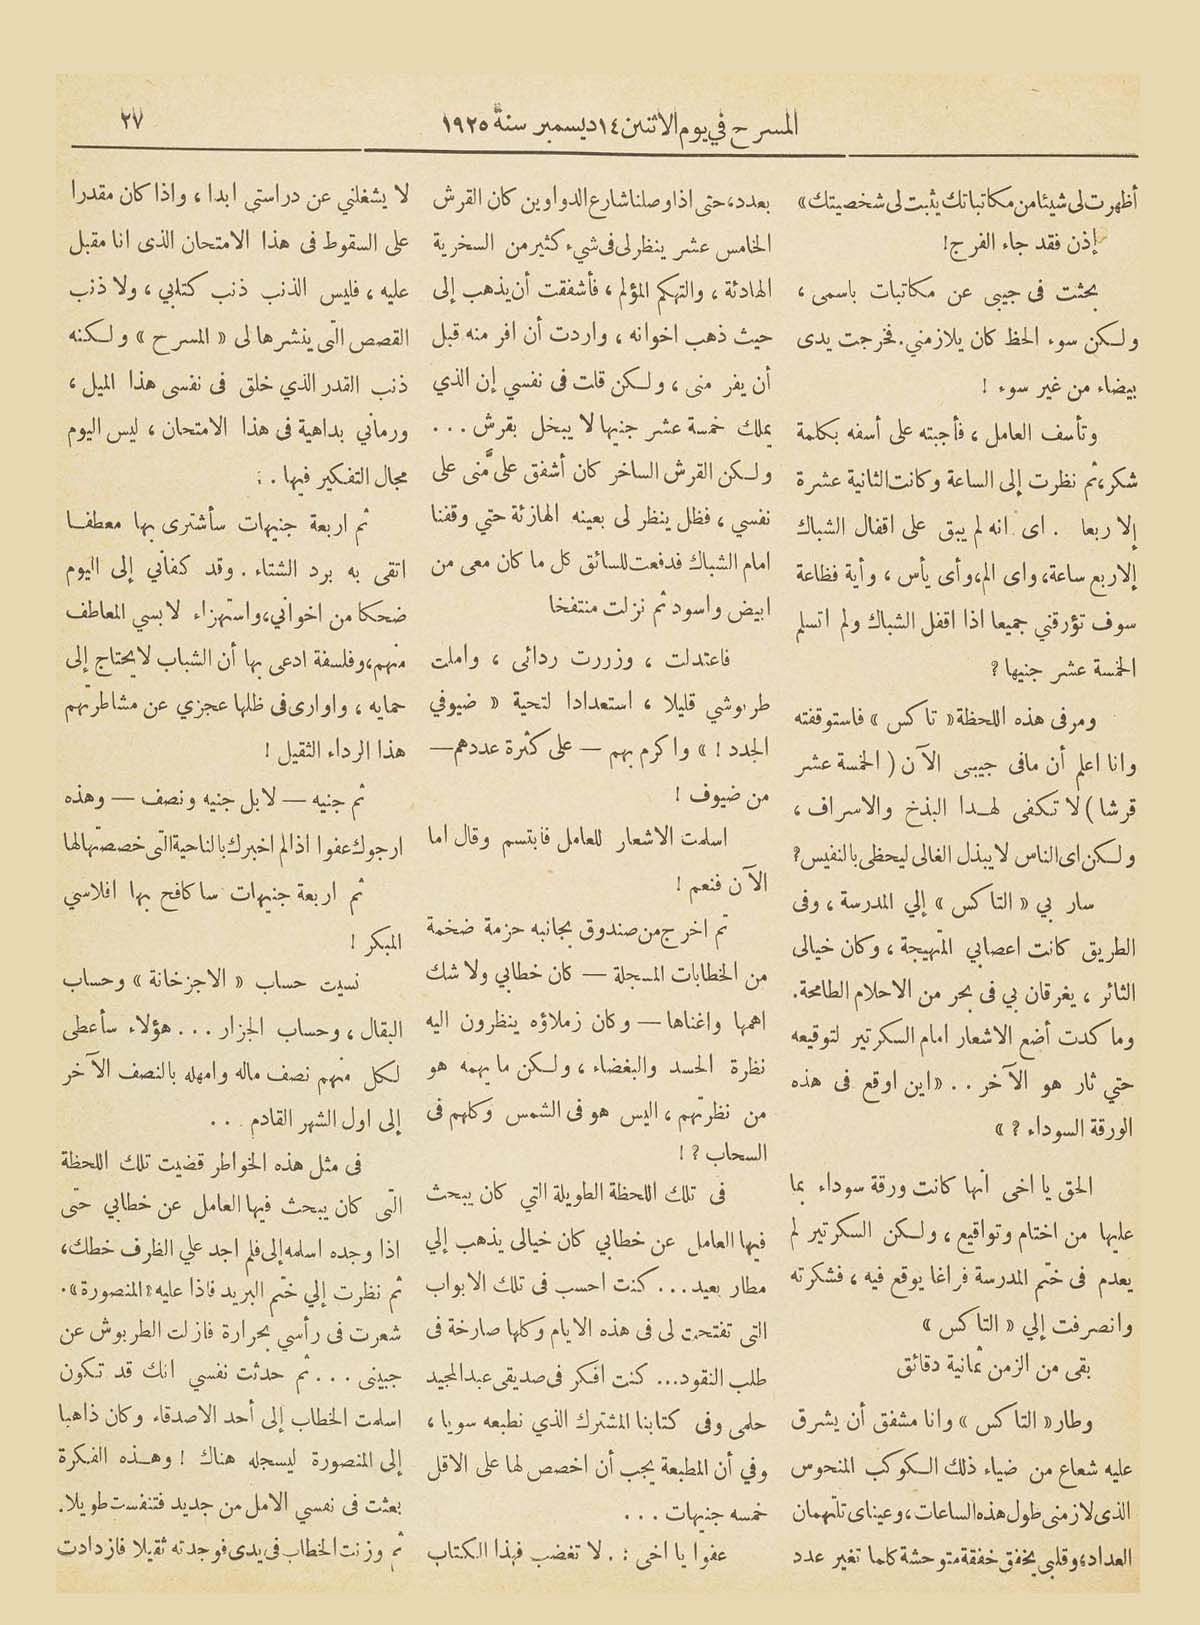 المسرح في يوم الاثنين ١٤ ديسمبر سنة ١٩٢٥
٢٧
أظهرت لى شيئا من مكاتباتك يثبت لى شخصيتك»
إذن فقد جاء الفرج!
بحثت فى جيبى عن مكاتبات باسمى ،
ولـكن سوء الحظ كان يلازمني. فخرجت يدى
بيضاء من غير سوء !
وتأسف العامل ، فأجبته على أسفه بكلمة
شكر، ثم نظرت إلى الساعة وكانت الثانية عشرة
إلا ربعا . اى انه لم يبق على اقفال الشباك
إلا ربع ساعة، واى الم، وأى يأس ، وأية فظاعة
سوف تؤرقني جميعا اذا اقفل الشباك ولم اتسلم
الخمسة عشر جنيها ؟
ومر فى هذه اللحظة « تاكس » فاستوقفته
وانا اعلم أن مافى جيبى الآن ( الخمسة عشر
قرشا ) لا تكفى لهـذا البذخ والاسراف ،
ولـكن اى الناس لا يبذل الغالى ليحظى بالنفيس؟
سار بي « التاكس » إلي المدرسة ، وفى
الطريق كانت اعصابي المتهيجة ، وكان خيالى
الثائر ، يغرقان بي فى بحر من الاحلام الطامحة.
وما كدت أضع الاشعار امام السكرتير لتوقيعه
حتي ثار هو الآخر . . «اين اوقع فى هذه
الورقة السوداء ؟ »
الحق يا اخى أنها كانت ورقة سوداء بما
عليها من اختام وتواقيع ، ولـكن السكرتير لم
يعدم فى ختم المدرسة فراغا يوقع فيه ، فشكرته
وانصرفت إلي « التاكس »
بقى من الزمن ثمانية دقائق
وطار « التاكس » وانا مشفق أن يشرق
عليه شعاع من ضياء ذلك الـكوكب المنحوس
الذى لازمنى طول هذه الساعات ، وعيناى تلتهمان
العداد، وقلبي يخفق خفقة متوحشة كلما تغير عدد
بعدد، حتى اذا وصلنا شارع الدواوين كان القرش
الخامس عشر ينظر لى فى شيء كثير من السخرية
الهادئة ، والتهكم المؤلم ، فأشفقت أن يذهب إلى
حيث ذهب اخوانه ، واردت أن افر منه قبل
أن يفر منى ، ولـكن قلت فى نفسي إن الذي
يملك خمسة عشر جنيها لا يبخل بقرش . . .
ولـكن القرش الساخر كان أشفق علىَّ منى على
نفسي ، فظل ينظر لى بعينه الهازئة حتي وقفنا
امام الشباك فدفعت للسائق كل ما كان معى من
ابيض واسود ثم نزلت منتفخا
فاعتدلت ، وزررت ردائى ، واملت
طربوشي قليلا ، استعدادا لتحية « ضيوفي
الجدد ! » واكرم بهم — على كثرة عددهم —
من ضيوف !
اسلمت الاشعار للعامل فابتسم وقال اما
الآن فنعم !
ثم اخرج من صندوق بجانبه حزمة ضخمة
من الخطابات المسجلة — كان خطابي ولا شك
اهمها واغناها — وكان زملاؤه ينظرون اليه
نظرة الحسد والبغضاء ، ولـكن ما يهمه هو
من نظرتهم ، اليس هو فى الشمس وكلهم فى
السحاب ؟ !
فى تلك اللحظة الطويلة التي كان يبحث
فيها العامل عن خطابي كان خيالى يذهب إلي
مطار بعيد . . . كنت احسب فى تلك الابواب
التى تفتحت لى فى هذه الايام وكلها صارخة فى
طلب النقود... كنت افكر فى صديقى عبد المجيد
حلمى وفى كتابنا المشترك الذي نطبعه سويا ،
وفي أن المطبعة يجب أن اخصص لها على الاقل
خمسه جنيهات . . .
عفوا يا اخى : . لا تغضب فهذا الكتاب
لا يشغلني عن دراستي ابدا ، واذا كان مقدرا
على السقوط فى هذا الامتحان الذى انا مقبل
عليه ، فليس الذنب ذنب كتابي ، ولا ذنب
القصص التى ينشرها لى « المسرح » ولـكنه
ذنب القدر الذي خلق فى نفسى هذا الميل ،
ورماني بداهية فى هذا الامتحان ، ليس اليوم
مجال التفكير فيها . .
ثم اربعة جنيهات سأشترى بها معطفـا
اتقى به برد الشتاء . وقد كفانى إلى اليوم
ضحكا من اخواني، واستهزاء لابسي المعاطف
منهم، وفلسفة ادعى بها أن الشباب لا يحتاج إلى
حمايه ، واوارى فى ظلها عجزي عن مشاطرتهم
هذا الرداء الثقيل !
ثم جنيه — لا بل جنيه ونصف — وهذه
ارجوك عفوا اذا لم اخبرك بالناحية التى خصصتها لها
ثم اربعة جنيهات ساكافح بها افلاسي
المبكر !
نسيت حساب « الاجزخانة » وحساب
البقال ، وحساب الجزار . . . هؤلاء سأعطى
لـكل منهم نصف ماله وامهله بالنصف الآخر
إلى اول الشهر القادم . . .
فى مثل هذه الخواطر قضيت تلك اللحظة
التى كان يبحث فيها العامل عن خطابي حتى
اذا وجده اسلمه إلى فلم اجد علي الظرف خطك،
ثم نظرت إلي ختم البريد فاذا عليه «المنصورة».
شعرت فى رأسي بحرارة فازلت الطربوش عن
جبينى . . . ثم حدثت نفسي انك قد تـكون
اسلمت الخطاب إلى أحد الاصدقاء وكان ذاهبا
إلى المنصورة ليسجله هناك ! وهـذه الفكرة
بعثت فى نفسي الامل من جديد فتنفست طويلا.
ثم وزنت الخطاب فى يدى فوجدته ثقيلا فازدادت